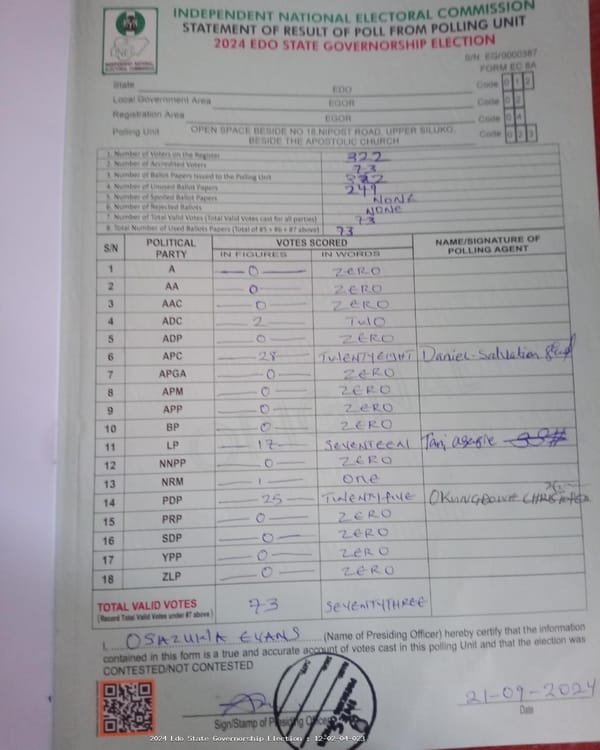 INDEPENDENT NATIONAL ELECTORAL COMMISSION
STATEMENT OF RESULT OF POLL FROM POLLING UNIT
2024 EDO STATE GOVERNORSHIP ELECTION
INDEPENDENT NATIONAL ELECTORAL COMMISSION
S/N: EG/0000387
FORM EC 8A
State EDO Code 0 1 2
Local Government Area EGOR Code 0 2
Registration Area EGOR Code 0 4
Polling Unit OPEN SPACE BESIDE NO 18,NIPOST ROAD, UPPER SILUKO, BESIDE THE APOSTOLIC CHURCH Code 0 2 3
1. Number of Voters on the Register 322
2. Number of Accredited Voters 73
3. Number of Ballot Papers Issued to the Polling Unit 322
4. Number of Unused Ballot Papers 249
5. Number of Spoiled Ballot Papers NONE
6. Number of Rejected Ballots NONE
7. Number of Total Valid Votes (Total Valid Votes cast for all parties) 73
8. Total Number of Used Ballots Papers (Total of #5 + #6 + #7 above) 73
S/N POLITICAL PARTY VOTES SCORED NAME/SIGNATURE OF POLLING AGENT
IN FIGURES IN WORDS
1 A 0 ZERO
2 AA 0 ZERO
3 AAC 0 ZERO
4 ADC 2 TWO
5 ADP 0 ZERO
6 APC 28 TWENTYEIGHT Daniel Salvation
7 APGA 0 ZERO
8 APM 0 ZERO
9 APP 0 ZERO
10 BP 0 ZERO
11 LP 17 SEVENTEEN
12 NNPP 0 ZERO
13 NRM 1 One
14 PDP 25 TWENTYFIVE
15 PRP 0 ZERO
16 SDP 0 ZERO
17 YPP 0 ZERO
18 ZLP 0 ZERO
TOTAL VALID VOTES 73 SEVENTYTHREE
(Record Total Valid Votes under #7 above)
I, OSAZUWA EVANS (Name of Presiding Officer) hereby certify that the information
contained in this form is a true and accurate account of votes cast in this polling Unit and that the election was
CONTESTED/NOT CONTESTED
21-09-2024
Sign/Stamp of Presiding Officer Date
2024 Edo State Governorship Election : 12-02-04-023